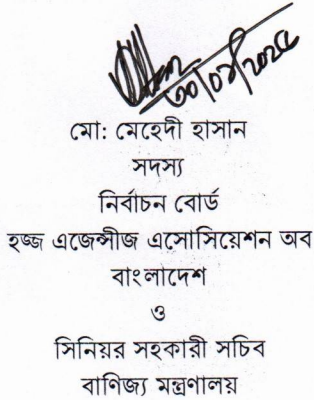 ৩০/০৯/২০২৫
মো: মেহেদী হাসান
সদস্য
নির্বাচন বোর্ড
হজ্জ এজেন্সীজ এসোসিয়েশন অব
বাংলাদেশ
ও
সিনিয়র সহকারী সচিব
বাণিজ্য মন্ত্রণালয়